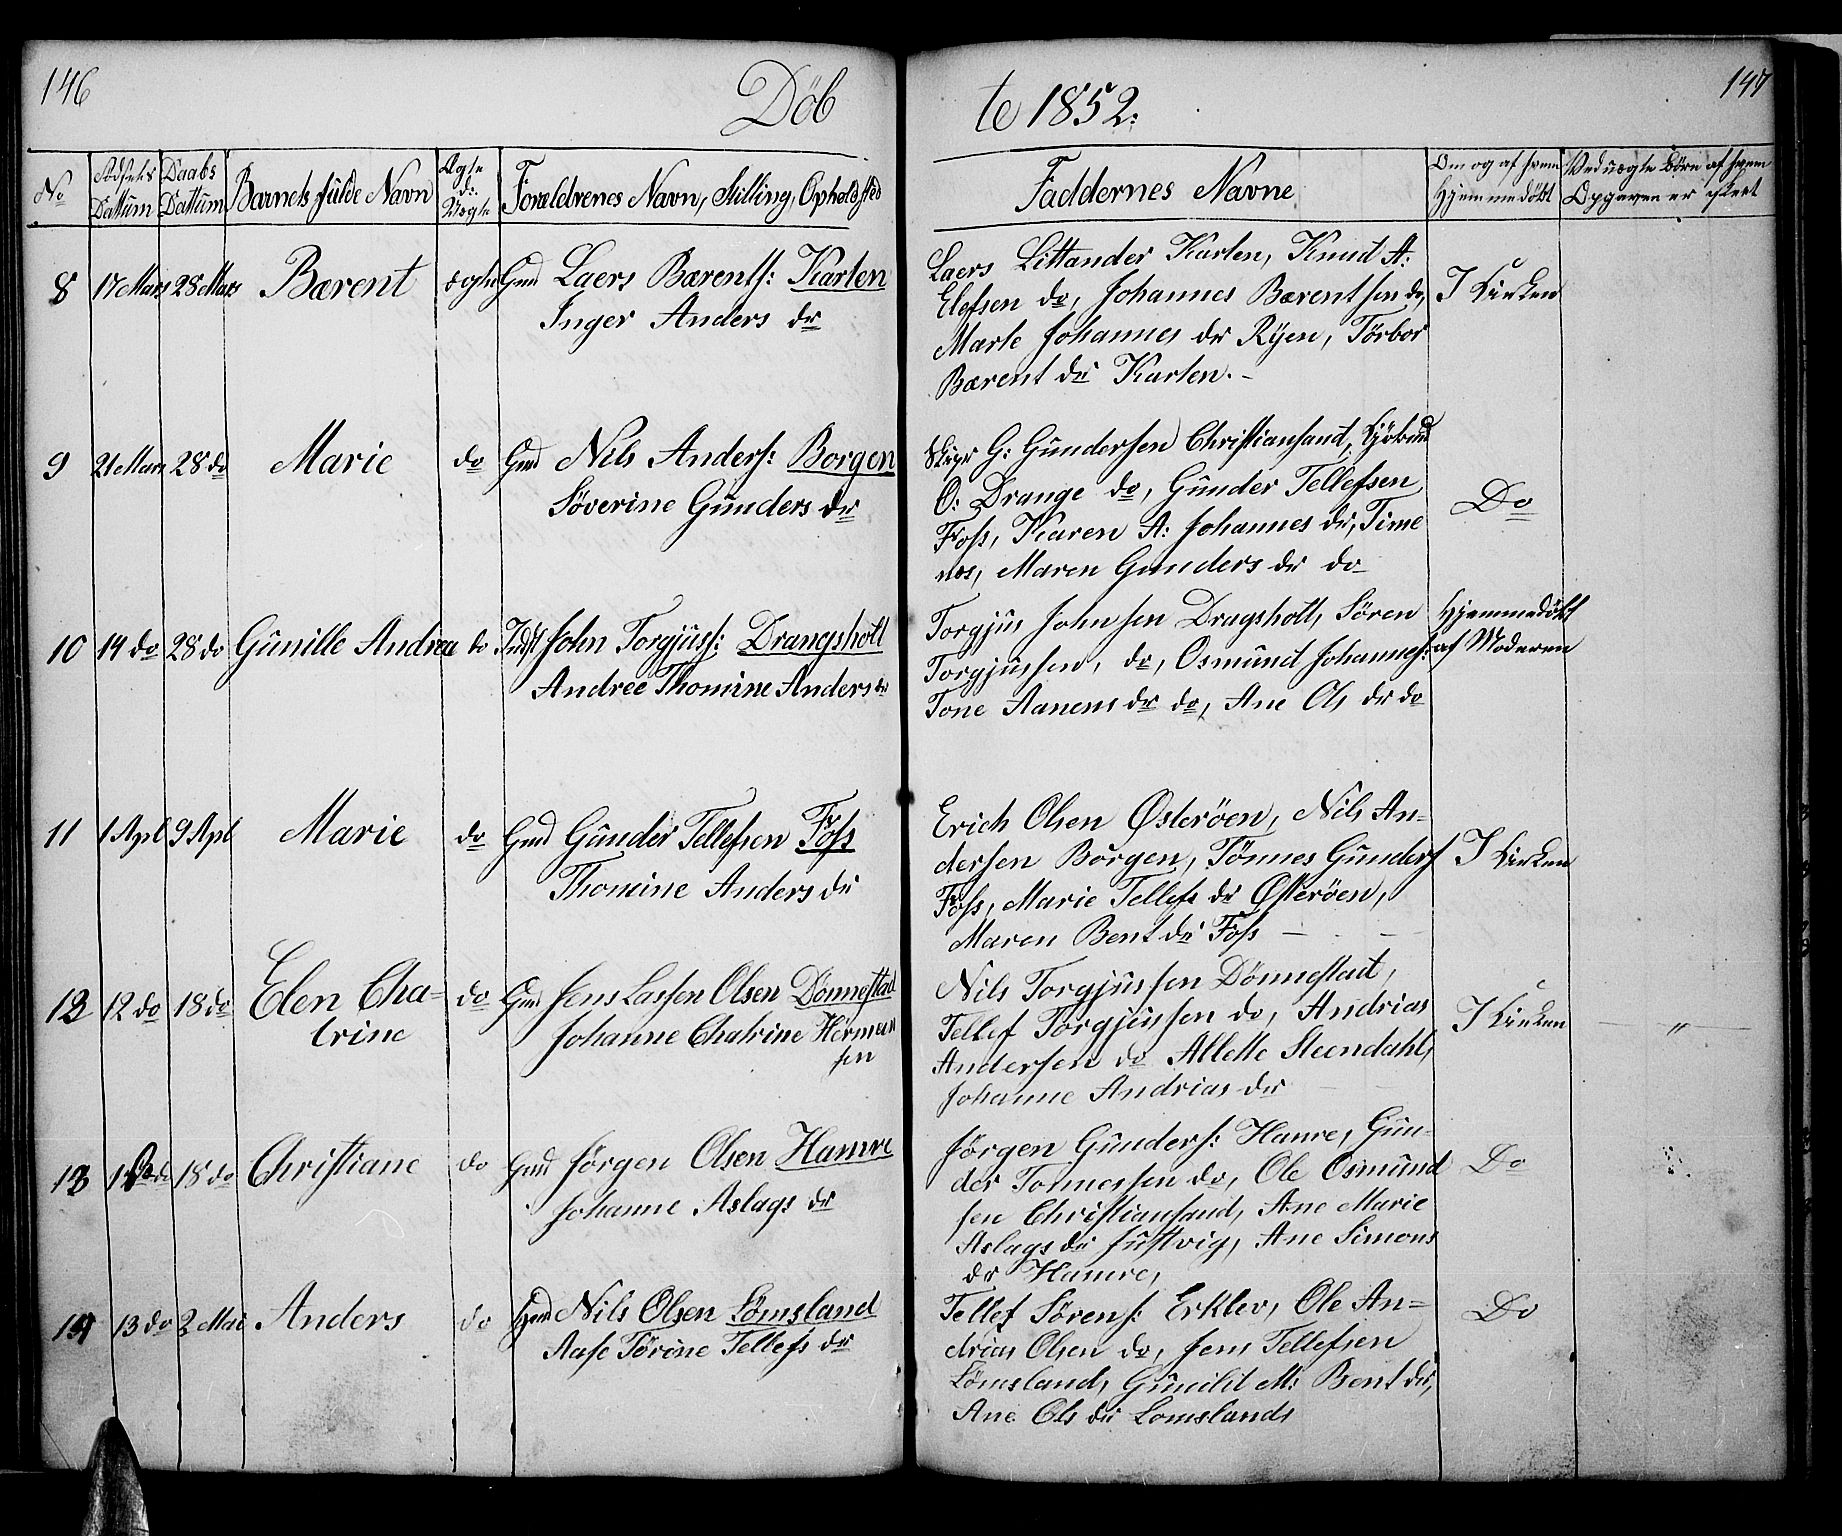 146
Döb
te 1852.
147
No
Födsels Dattum
Daabs Dattum
Barnets fulde Navn
Ægte do Uægte
Foraldrenes Navn, Stilling, Opholdsted
Faddernes Navne
Om og af hvem Hjemmedöbt
Ved uægte Börn af hvem Opgaven er skeet
8 17 Mars 28 Mars Bærent ægte Gmd Laers Bærents: Karten
Inger Anders dr
Laers Littander Karten, Knud A:
Elefsen do, Johannes Bærentsen do,
Marte Johannes dr Ryen, Törbor
Bærent dr Karten.-
I Kirken
9 21 Mars 28 do Marie do Gmd Nils Anders: Borgen
Söverine Gunders dr
Skipr G: Gundersen Christiansand,
O: Drange do, Gunder Tellefsen
Foss, Karen A: Johannes dr, Time
nes, Maren Gunders dr do
Do
10 14 do 28 do Gunille Andrea do Indst John Torgjuss: Drangsholt
Andree Thomine Anders dr
Torgjus Johnsen Dragsholt, Sören
Torgjussen, do, Osmund Johanness:
Tone Aanens dr do, Ane Ols dr do
Hjemmedöbt
af Moderen
11 1 Apl 9 Apl Marie do Gmd Gunder Tellefsen Foss
Thomine Anders dr
Erich Olsen Østeröen, Nils An-
dersen Borgen, Tönnes Gunders
Foss, Marie Tellefs dr Østeröen,
Maren Bent dr Foss
I Kirken
12 12 do 18 do Elen Cha-
trine
do Gmd Jens Lassen Olsen Dönnestad
Johanne Chatrine Herman
sen
Nils Torgjussen Dönnestad,
Tellef Torgjussen do, Andrias
Andersen do Allette Steendahl,
Johanne Andrias dr
I Kirken
— " —
13 18 do Christiane do Gmd Jörgen Olsen Hamre
Johanne Aslags dr
Jörgen Gunders: Hamre, Gun-
der Tonnessen do, Ole Osmund
sen Christiansand, Ane Marie
Aslags dr Justvig, Ane Simons
dr Hamre,
Do
14 13 do 2 Mai Anders do Gmd Nils Olsen Lömsland
Aase Törine Tellefs dr
Tellef Sörens: Erklev, Ole An-
drias Olsen do, Jens Tellefsen
Lömsland, Gunild M: Bent dr,
Ane Ols dr Lomslands
Do